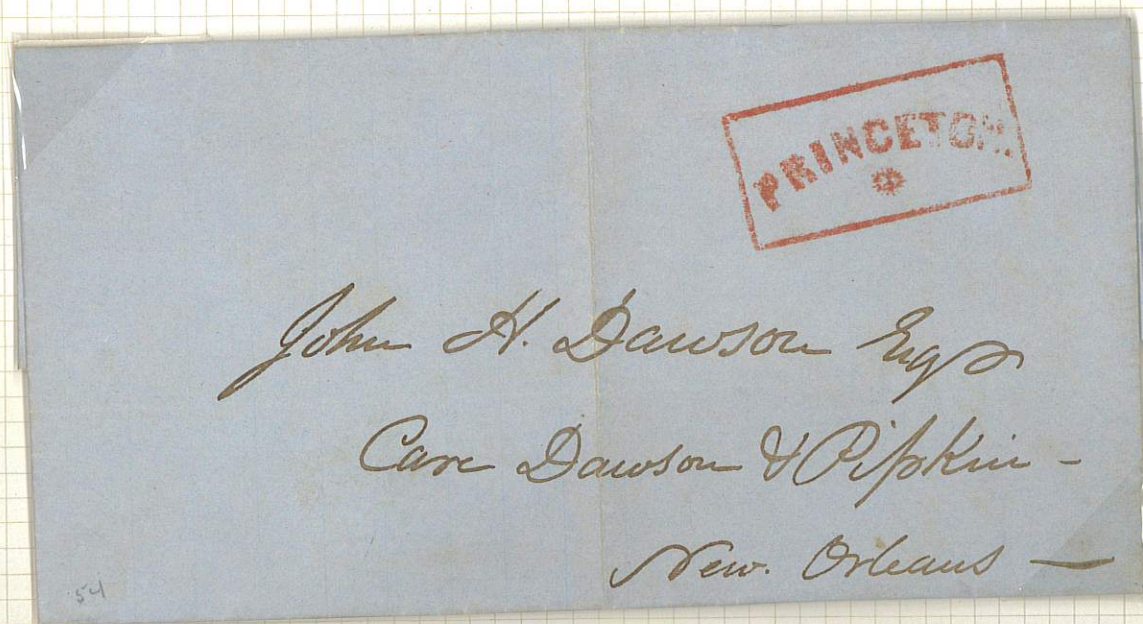 PRINCETON.
John H. Dawson Esqr
Care Dawson & Pipkin -
New. Orleans —
54